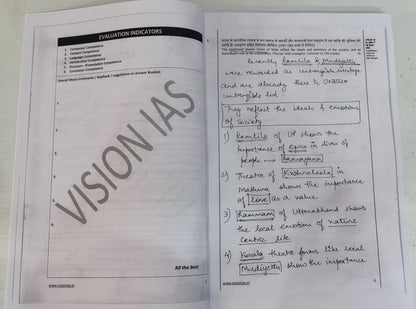 EVALUATION INDICATORS
1. Contextual Competence
2. Content Competence
3. Language Competence
4. Introduction Competence
5. Structure - Presentation Competence
6. Conclusion Competence
Overall Macro Comments / feedback / suggestions on Answer Booklet:
1.
2.
3.
4.
5.
6.
VISION IAS
All the Best
www.visionias.in
Recently Ramlila & Mudiyettu
were rewarded as intangible heritage
and are already there in UNESCO
intangible list
They reflect the ideals & emotions
of society
1) Ramlila of UP shows the
importance of epics in lives of
people → Ramayana
2) Theatre of Krishnaleela in
Mathura shows the importance
of love as a value
3) Rammam of Uttarakhand shows
the local emotions of nature
centric life
4) Kerala theatre forms like local
Mudiyettu show the importance
www.visionias.in